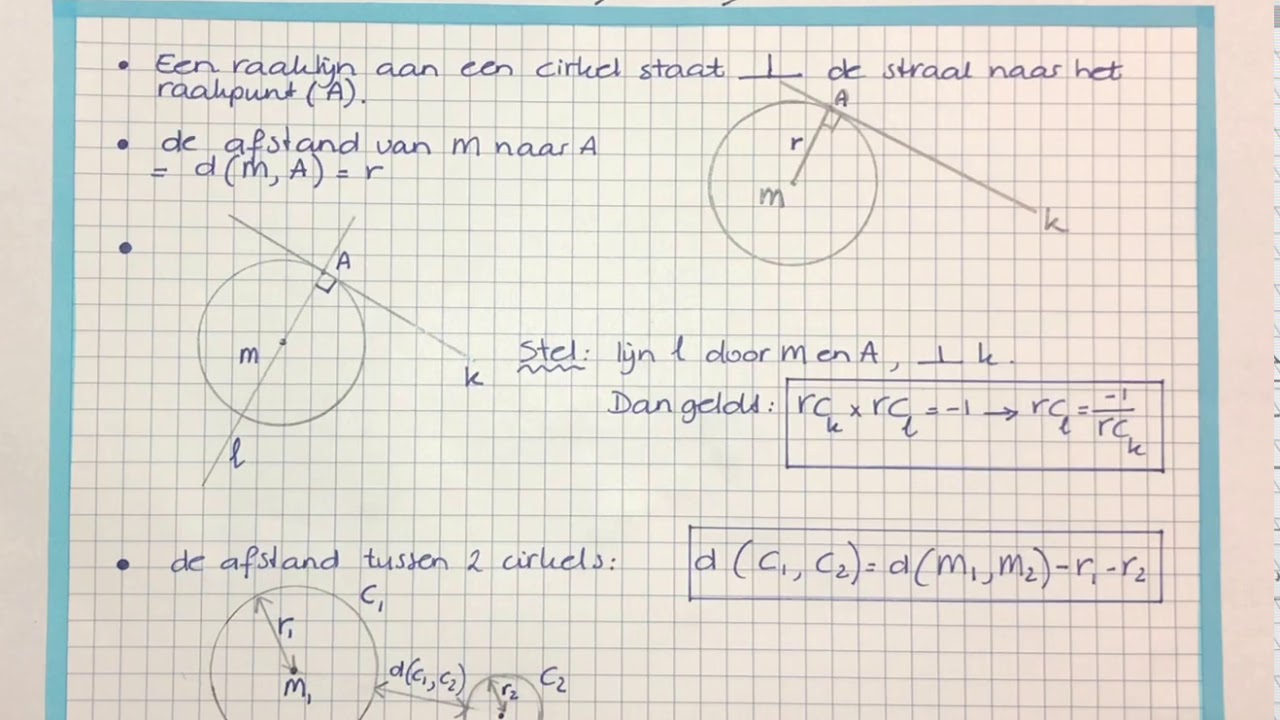 • Een raaklijn aan een cirkel staat ⊥ de straal naar het
raakpunt (A).
A
r
m
k
• de afstand van m naar A
= d(m, A) = r
•
A
m
k
l
Stel: lijn l door m en A, ⊥ k.
Dan geldt: rc_k × rc_l = -1 → rc_l = -1/rc_k
• de afstand tussen 2 cirkels:
d (C₁, C₂) = d(m₁, m₂) - r₁ - r₂
C₁
r₁
m₁
d(C₁, C₂)
C₂
r₂